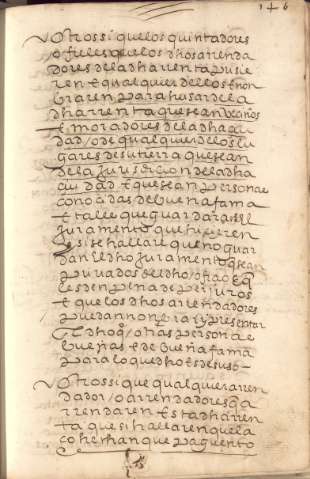 146
Otrossi que los quintadores
o fieles que los dhos arrenda
dores de la dha rrenta pusie
ren e qualquier dellos e non
braren para husar de la
dha rrenta que sean vezinos
e moradores de la dha çiu
dad / o de qualquier de los lu
gares de su tierra que sean
de la jurisdiçion de la dha
çiudad e que sean personas
conoçidas de buena fama
e tales que guardaran el
juramento que hizieren
e si se hallare que no guar
dan el dho juramento q sean
pribados del dho
les den pena de perjuros
e que los dhos arrendadores
puedan nonbrar y presentar
otras personas
buenas e de buena fama
para lo que dho es de suso
Otrossi que qualquier arren
dador / o arrendadores q a
rrendaren esta dha rren
ta que si hallaren que la
cohecho han que paguen to